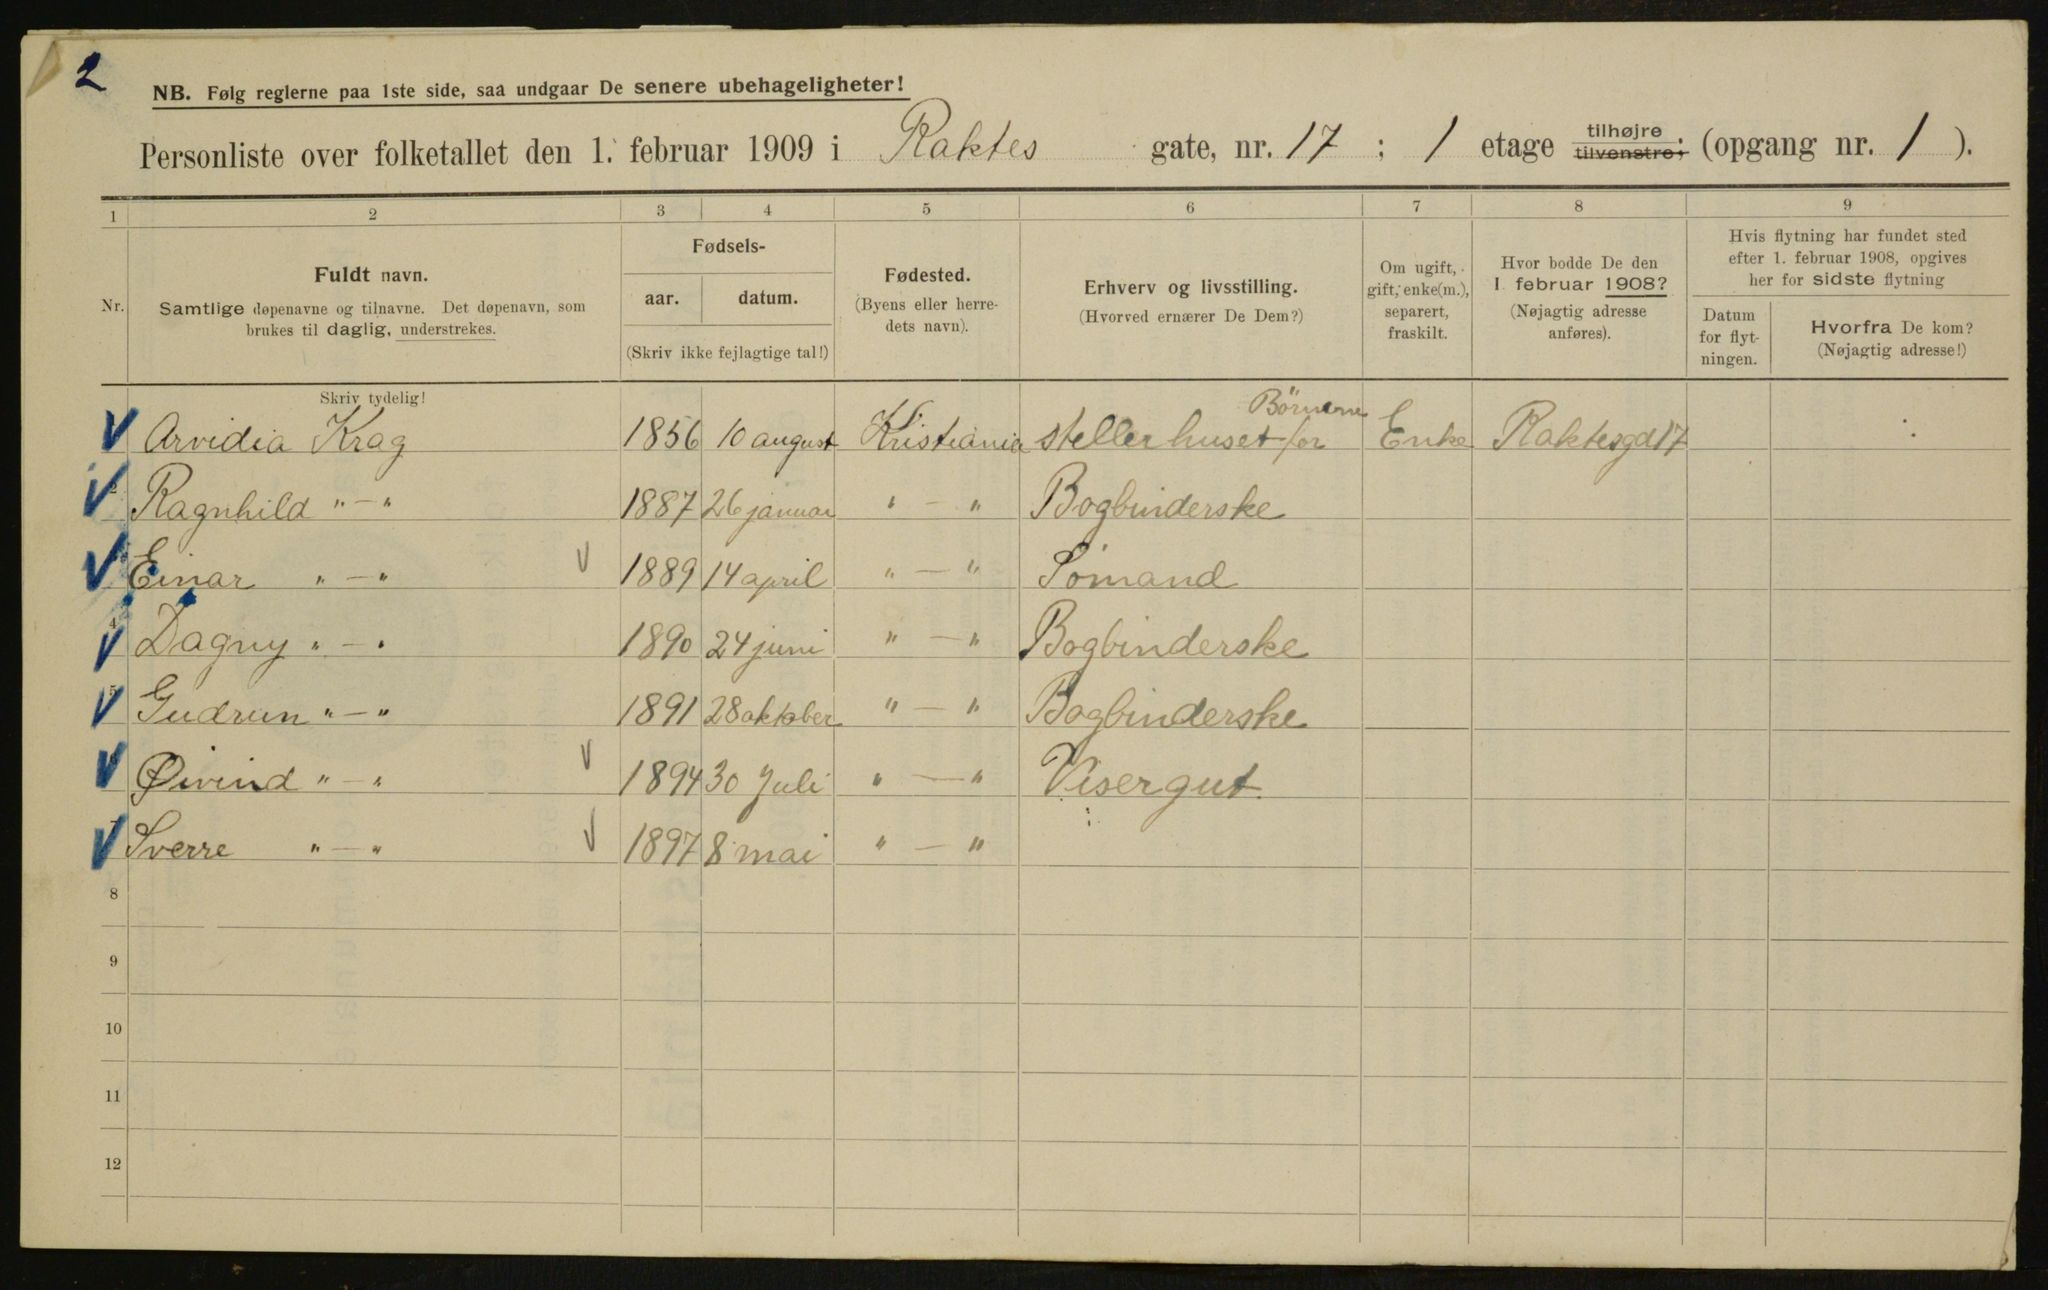 2
NB. Følg reglerne paa 1ste side, saa undgaar De senere ubehageligheter!
Personliste over folketallet den 1. februar 1909 i Raktes gate, nr. 17 ; 1 etage tilhøjre tilvenstre; (opgang nr. 1 ).
1 2 3 4 5 6 7 8 9
Nr.
Fuldt navn.
Samtlige døpenavne og tilnavne. Det døpenavn, som
brukes til daglig, understrekes.
Fødsels-
aar. datum.
(Skriv ikke fejlagtige tal!)
Fødested.
(Byens eller herre-
dets navn).
Erhverv og livsstilling.
(Hvorved ernærer De Dem?)
Om ugift,
gift, enke(m.),
separert,
fraskilt.
Hvor bodde De den
1. februar 1908?
(Nøjagtig adresse
anføres).
Hvis flytning har fundet sted
efter 1. februar 1908, opgives
her for sidste flytning
Datum
for flyt-
ningen.
Hvorfra De kom?
(Nøjagtig adresse!)
Skriv tydelig!
Børnene
Arvidia Krag 1856 10 august Kristiania steller huset for Enke Raktesgd 17
2 Ragnhild "—" 1887 26 januar "—" Bogbinderske
Einar "—" 1889 14 april "—" Sömand
4 Dagny "—" 1890 24 juni "—" Bogbinderske
5 Gudrun "—" 1891 28 oktober "—" Bogbinderske
Øivind "—" 1894 30 Juli "—" Visergut
7 Sverre "—" 1897 8 mai "—"
8
9
10
11
12